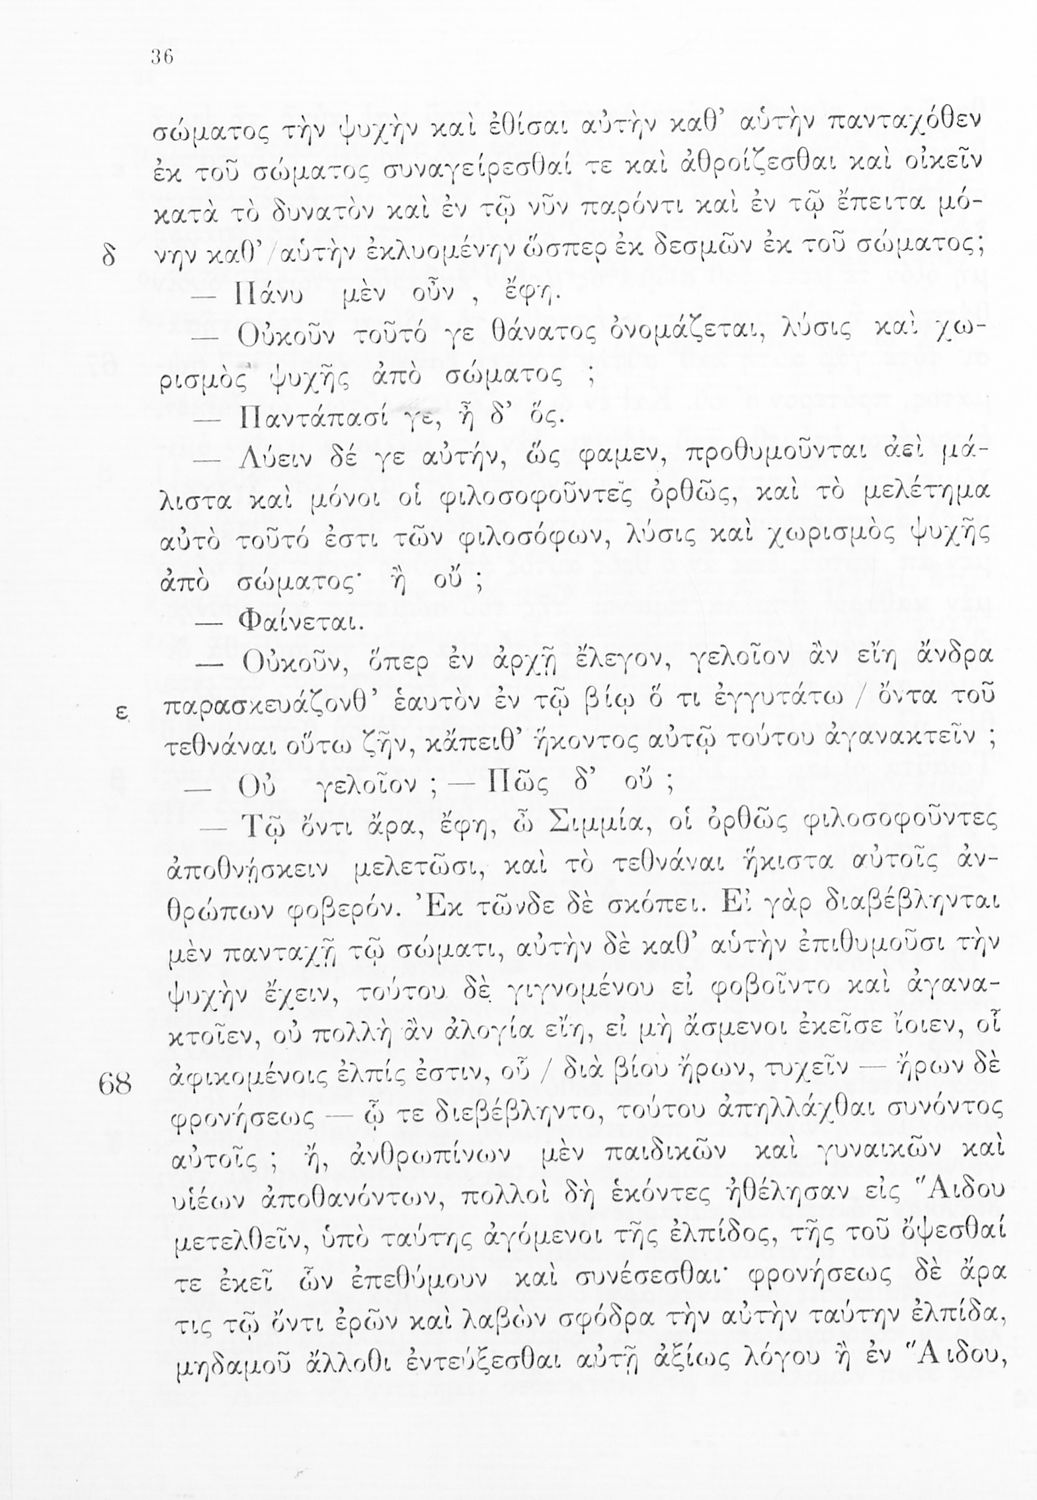 36
σώματος τὴν ψυχὴν καὶ ἐθίσαι αὐτὴν καθ’ αὑτὴν πανταχόθεν
ἐκ τοῦ σώματος συναγείρεσθαί τε καὶ ἀθροίζεσθαι καὶ οἰκεῖν
κατὰ τὸ δυνατὸν καὶ ἐν τῷ νῦν παρόντι καὶ ἐν τῷ ἔπειτα μό-
δ νην καθ’ / αὑτὴν ἐκλυομένην ὥσπερ ἐκ δεσμῶν ἐκ τοῦ σώματος;
— Πάνυ μὲν οὖν , ἔφη.
— Οὐκοῦν τοῦτό γε θάνατος ὀνομάζεται, λύσις καὶ χω-
ρισμὸς ψυχῆς ἀπὸ σώματος ;
— Παντάπασί γε, ἦ δ’ ὅς.
— Λύειν δέ γε αὐτήν, ὥς φαμεν, προθυμοῦνται ἀεὶ μά-
λιστα καὶ μόνοι οἱ φιλοσοφοῦντες ὀρθῶς, καὶ τὸ μελέτημα
αὐτὸ τοῦτό ἐστι τῶν φιλοσόφων, λύσις καὶ χωρισμὸς ψυχῆς
ἀπὸ σώματος· ἢ οὔ ;
— Φαίνεται.
— Οὐκοῦν, ὅπερ ἐν ἀρχῇ ἔλεγον, γελοῖον ἂν εἴη ἄνδρα
ε παρασκευάζονθ’ ἑαυτὸν ἐν τῷ βίῳ ὅ τι ἐγγυτάτω / ὄντα τοῦ
τεθνάναι οὕτω ζῆν, κἄπειθ’ ἥκοντος αὐτῷ τούτου ἀγανακτεῖν ;
— Οὐ γελοῖον ; — Πῶς δ’ οὔ ;
— Τῷ ὄντι ἄρα, ἔφη, ὦ Σιμμία, οἱ ὀρθῶς φιλοσοφοῦντες
ἀποθνῄσκειν μελετῶσι, καὶ τὸ τεθνάναι ἥκιστα αὐτοῖς ἀν-
θρώπων φοβερόν. Ἐκ τῶνδε δὲ σκόπει. Εἰ γὰρ διαβέβληνται
μὲν πανταχῇ τῷ σώματι, αὐτὴν δὲ καθ’ αὑτὴν ἐπιθυμοῦσι τὴν
ψυχὴν ἔχειν, τούτου δὲ γιγνομένου εἰ φοβοῖντο καὶ ἀγανα-
κτοῖεν, οὐ πολλὴ ἂν ἀλογία εἴη, εἰ μὴ ἄσμενοι ἐκεῖσε ἴοιεν, οἷ
68 ἀφικομένοις ἐλπίς ἐστιν, οὗ / διὰ βίου ἤρων, τυχεῖν — ἤρων δὲ
φρονήσεως — ᾧ τε διεβέβληντο, τούτου ἀπηλλάχθαι συνόντος
αὐτοῖς ; ἤ, ἀνθρωπίνων μὲν παιδικῶν καὶ γυναικῶν καὶ
υἱέων ἀποθανόντων, πολλοὶ δὴ ἑκόντες ἠθέλησαν εἰς Ἅιδου
μετελθεῖν, ὑπὸ ταύτης ἀγόμενοι τῆς ἐλπίδος, τῆς τοῦ ὄψεσθαί
τε ἐκεῖ ὧν ἐπεθύμουν καὶ συνέσεσθαι· φρονήσεως δὲ ἄρα
τις τῷ ὄντι ἐρῶν καὶ λαβὼν σφόδρα τὴν αὐτὴν ταύτην ἐλπίδα,
μηδαμοῦ ἄλλοθι ἐντεύξεσθαι αὐτῇ ἀξίως λόγου ἢ ἐν Ἅιδου,